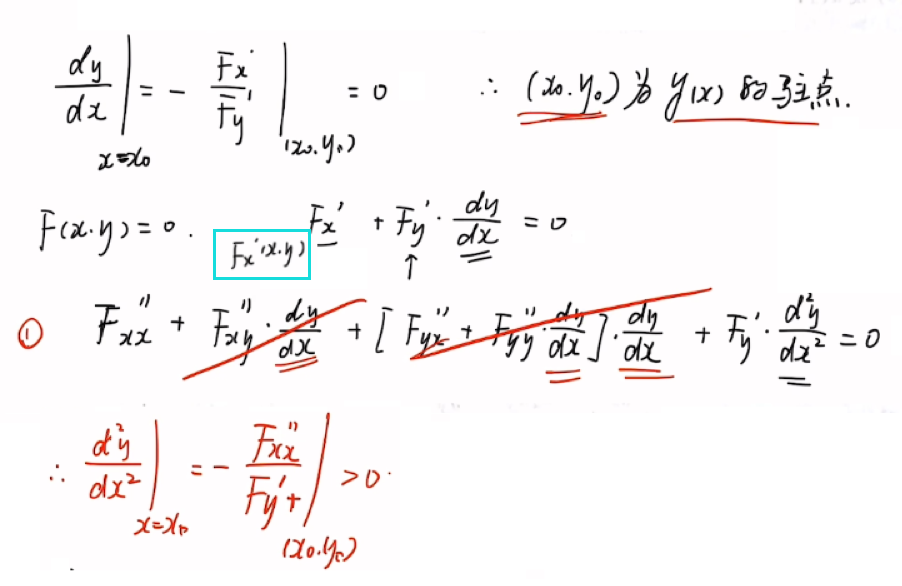 dy/dx |x=x₀ = - Fx'/Fy' |(x₀.y₀) = 0 ∴ (x₀.y₀)为y(x)的驻点.
F(x.y)=0. Fx' + Fy'·dy/dx = 0
Fx'(x.y) ↑
① Fxx'' + Fxy''·dy/dx + [Fyx'' + Fyy''·dy/dx]·dy/dx + Fy'·d²y/dx² = 0
∴ d²y/dx² |x=x₀ = - Fxx''/Fy'+ |(x₀.y₀) >0.